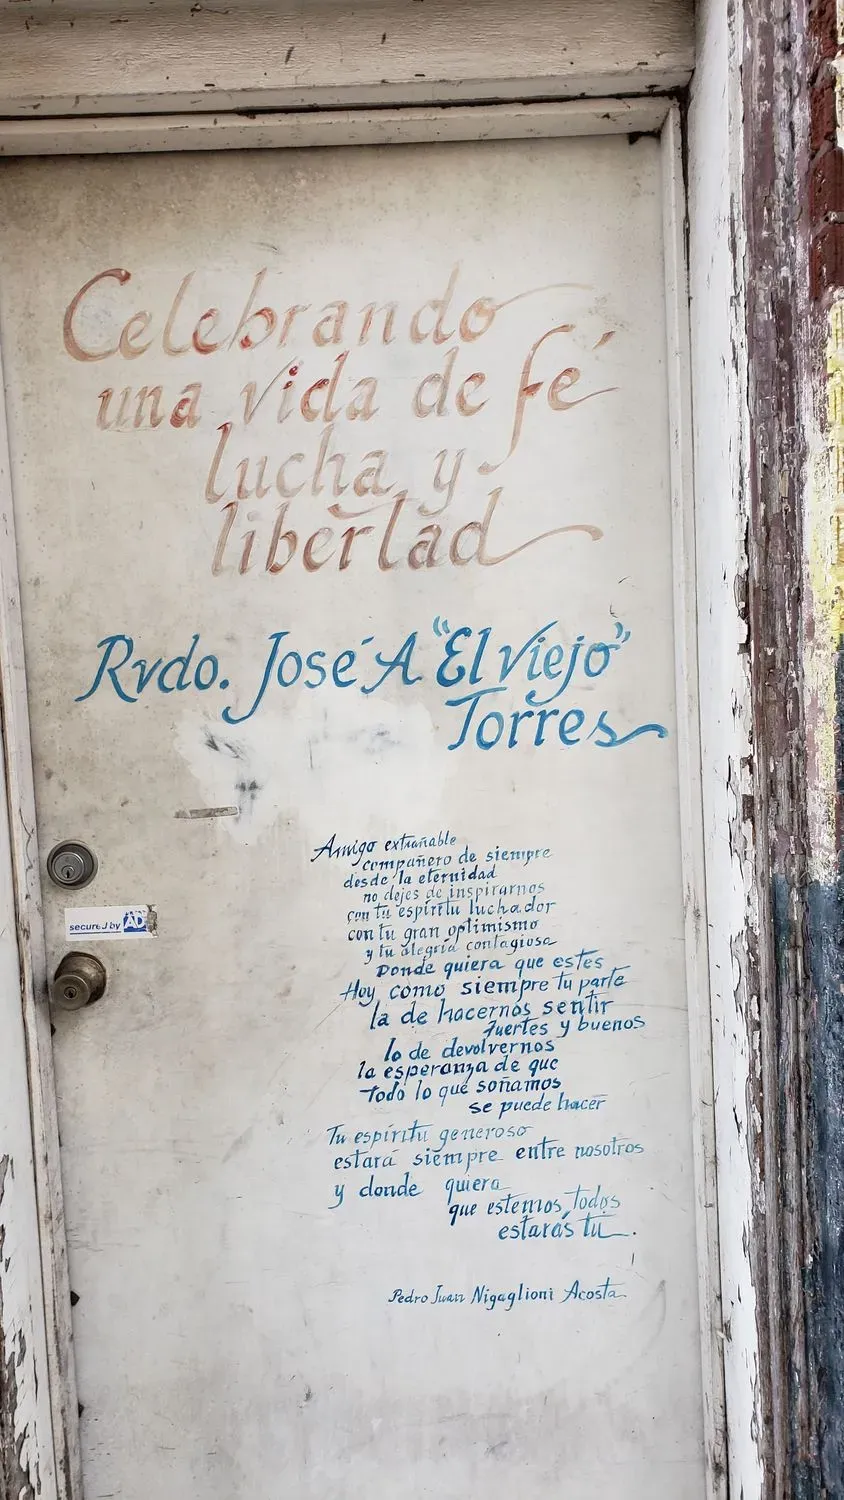 Celebrando
una vida de fé
lucha y
libertad
Rvdo. José A "El Viejo"
Torres
Amigo extrañable
compañero de siempre
desde la eternidad
no dejes de inspirarnos
con tu espíritu luchador
con tu gran optimismo
y tu alegría contagiosa
Donde quiera que estes
Hoy como siempre tu parte
la de hacernos sentir
fuertes y buenos
lo de devolvernos
la esperanza de que
Todo lo que soñamos
se puede hacer
Tu espíritu generoso
estará siempre entre nosotros
y donde quiera
que estemos todos
estarás tu.
Pedro Juan Nigaglioni Acosta
secured by ADT